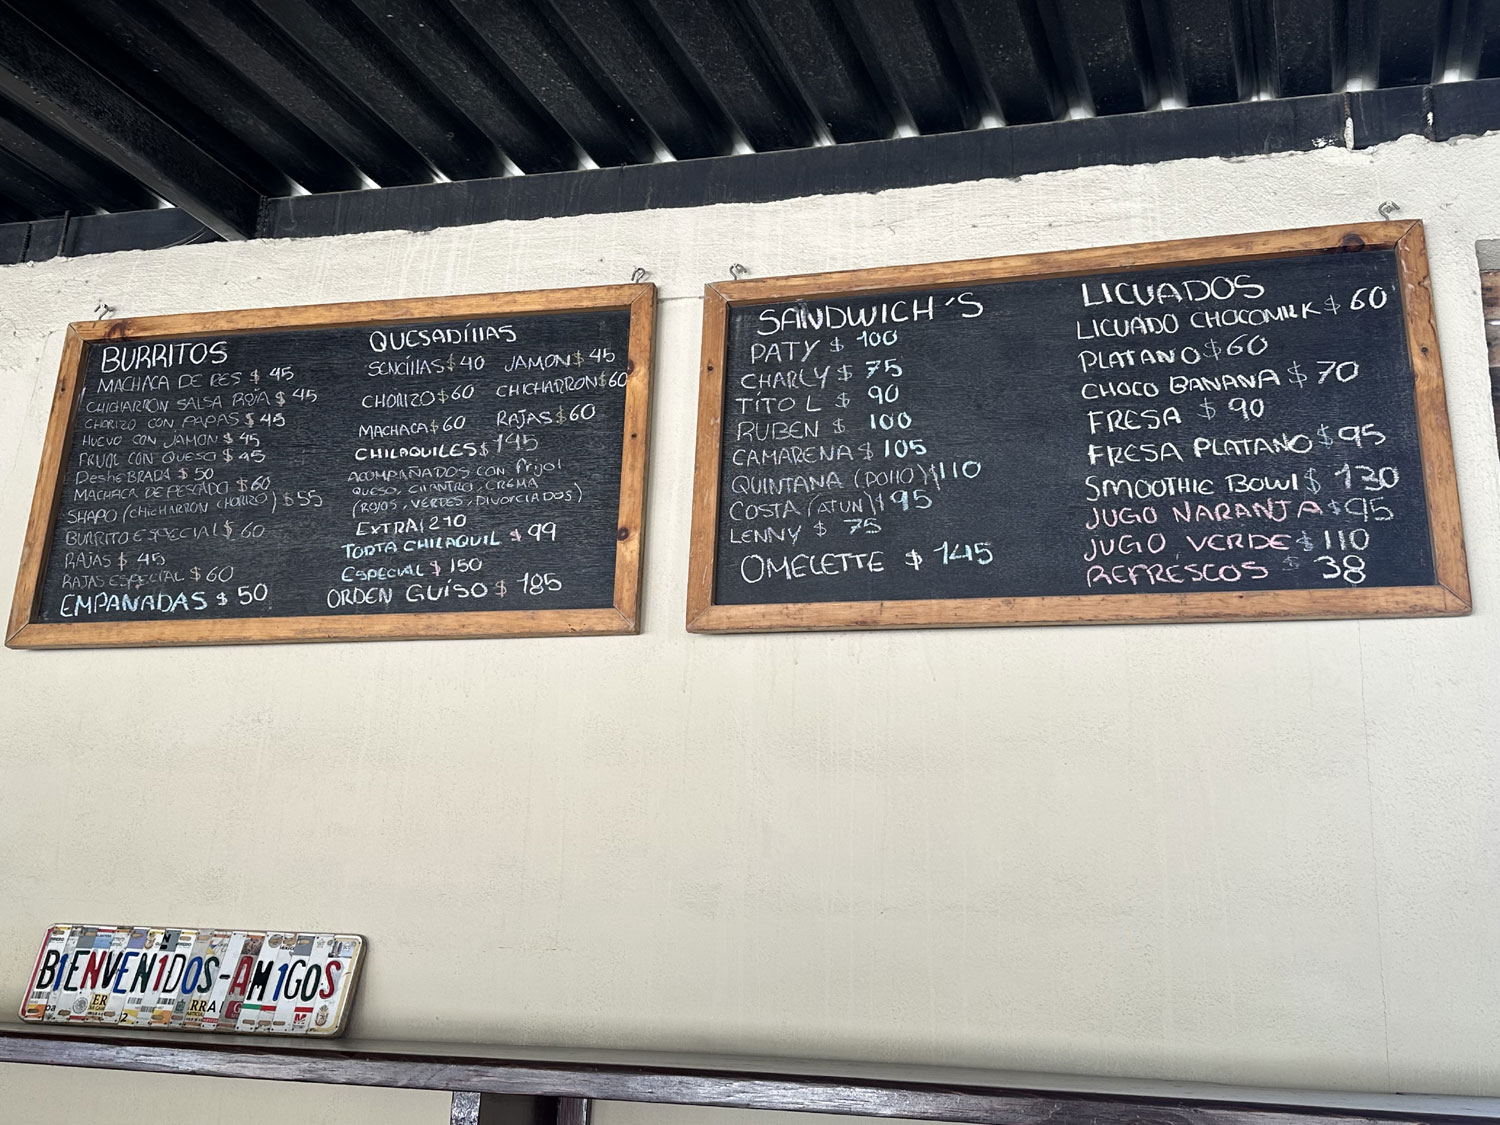 BURRITOS
MACHACA DE RES $ 45
CHICHARRON SALSA ROJA $ 45
CHORIZO CON PAPAS $ 45
HUEVO CON JAMON $ 45
FRIJOL CON QUESO $ 45
DesHeBRADA $ 50
MACHACA DE PESCADO $ 60
SHAPO (CHICHARRON CHORIZO) $ 55
BURRITO ESPECIAL $ 60
RAJAS $ 45
RAJAS ESPECIAL $ 60
EMPANADAS $ 50
QUESADIllAS
SENCIllAS $ 40 JAMON $ 45
CHORIZO $ 60 CHICHARRON $ 60
MACHACA $ 60 RAJAS $ 60
CHILAQUILES $ 145
ACOMPAÑADOS CON Frijol
QUESO, CILANTRO, CREMA
(ROJOS, VERDES, DIVORCIADOS)
EXTRA
TORTA CHILAQUIL $ 99
ESPECIAL $ 150
ORDEN GUISO $ 185
SANDWICH'S
PATY $ 100
CHARLY $ 75
TITO L $ 90
RUBEN $ 100
CAMARENA $ 105
QUINTANA (POllO) $ 110
COSTA (ATUN) $ 95
LENNY $ 75
OMELETTE $ 145
LICUADOS
LICUADO CHOCOMILK $ 60
PLATANO $ 60
CHOCO BANANA $ 70
FRESA $ 90
FRESA PLATANO $ 95
SMOOTHIE BOWl $ 130
JUGO NARANJA $ 95
JUGO VERDE $ 110
REFRESCOS $ 38
B1ENVEN1DOS-AM1GOS